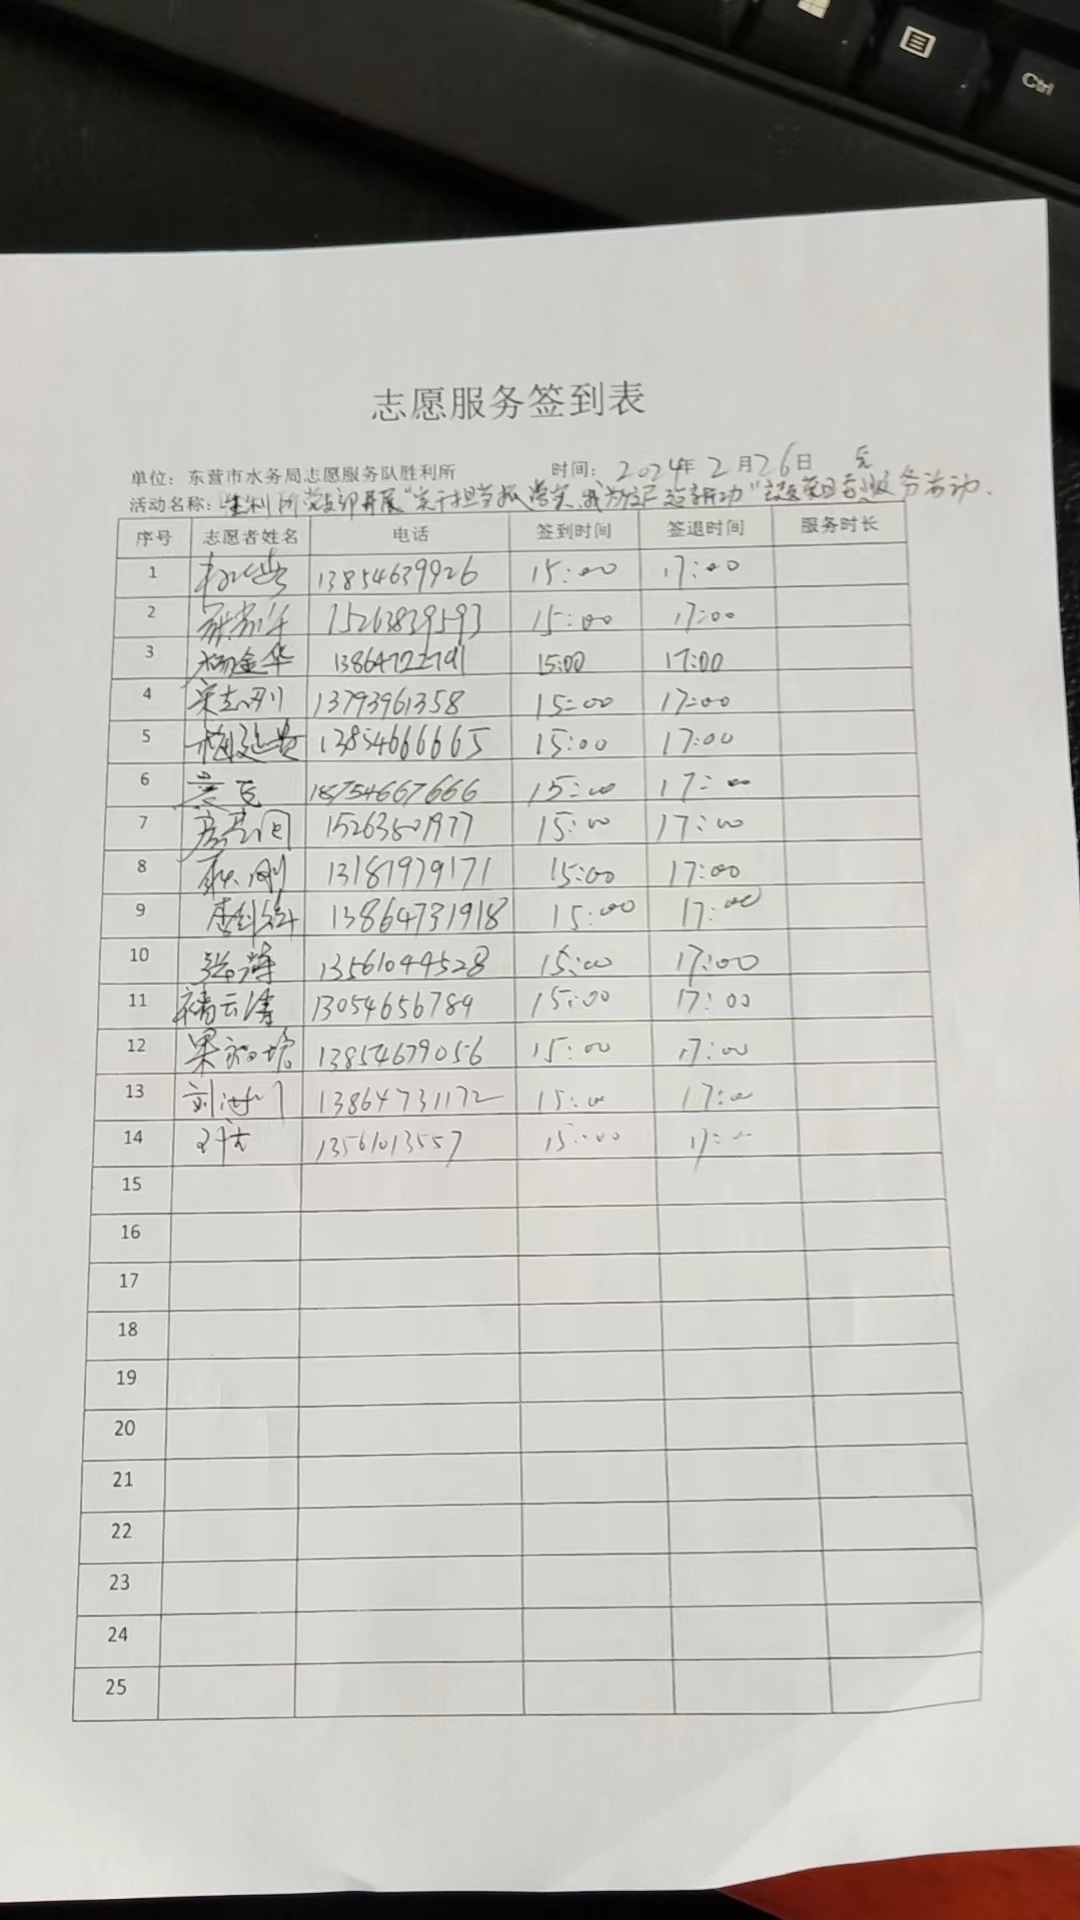 Ctrl
志愿服务签到表
单位：东营市水务局志愿服务队胜利所 时间：2024年2月26日
活动名称：胜利所党支部开展"实干担当 务活动.
序号 志愿者姓名 电话 签到时间 签退时间 服务时长
1 13854639926 15:00 17:00
2 15263839593 15:00 17:00
3 杨金华 13864722791 15:00 17:00
4 宋志刚 13793961358 15:00 17:00
5 梅延贵 13854666665 15:00 17:00
6 18754667666 15:00 17:00
7 15263801977 15:00 17:00
8 13181979171 15:00 17:00
9 13864731918 15:00 17:00
10 张涛 13561044528 15:00 17:00
11 褚云涛 13054656789 15:00 17:00
12 13854679056 15:00 17:00
13 13864731172 15:00 17:00
14 13561013557 15:00 17:00
15
16
17
18
19
20
21
22
23
24
25